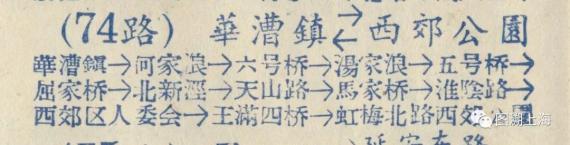 (74路) 華漕鎮⇄西郊公園
華漕鎭→何家浪→六号桥→湯家浪→五号桥→
屈家桥→北新涇→天山路→馬家桥→淮陰路→
西郊区人委会→王滿四桥→虹梅北路西郊公園
图溯上海
延安東路